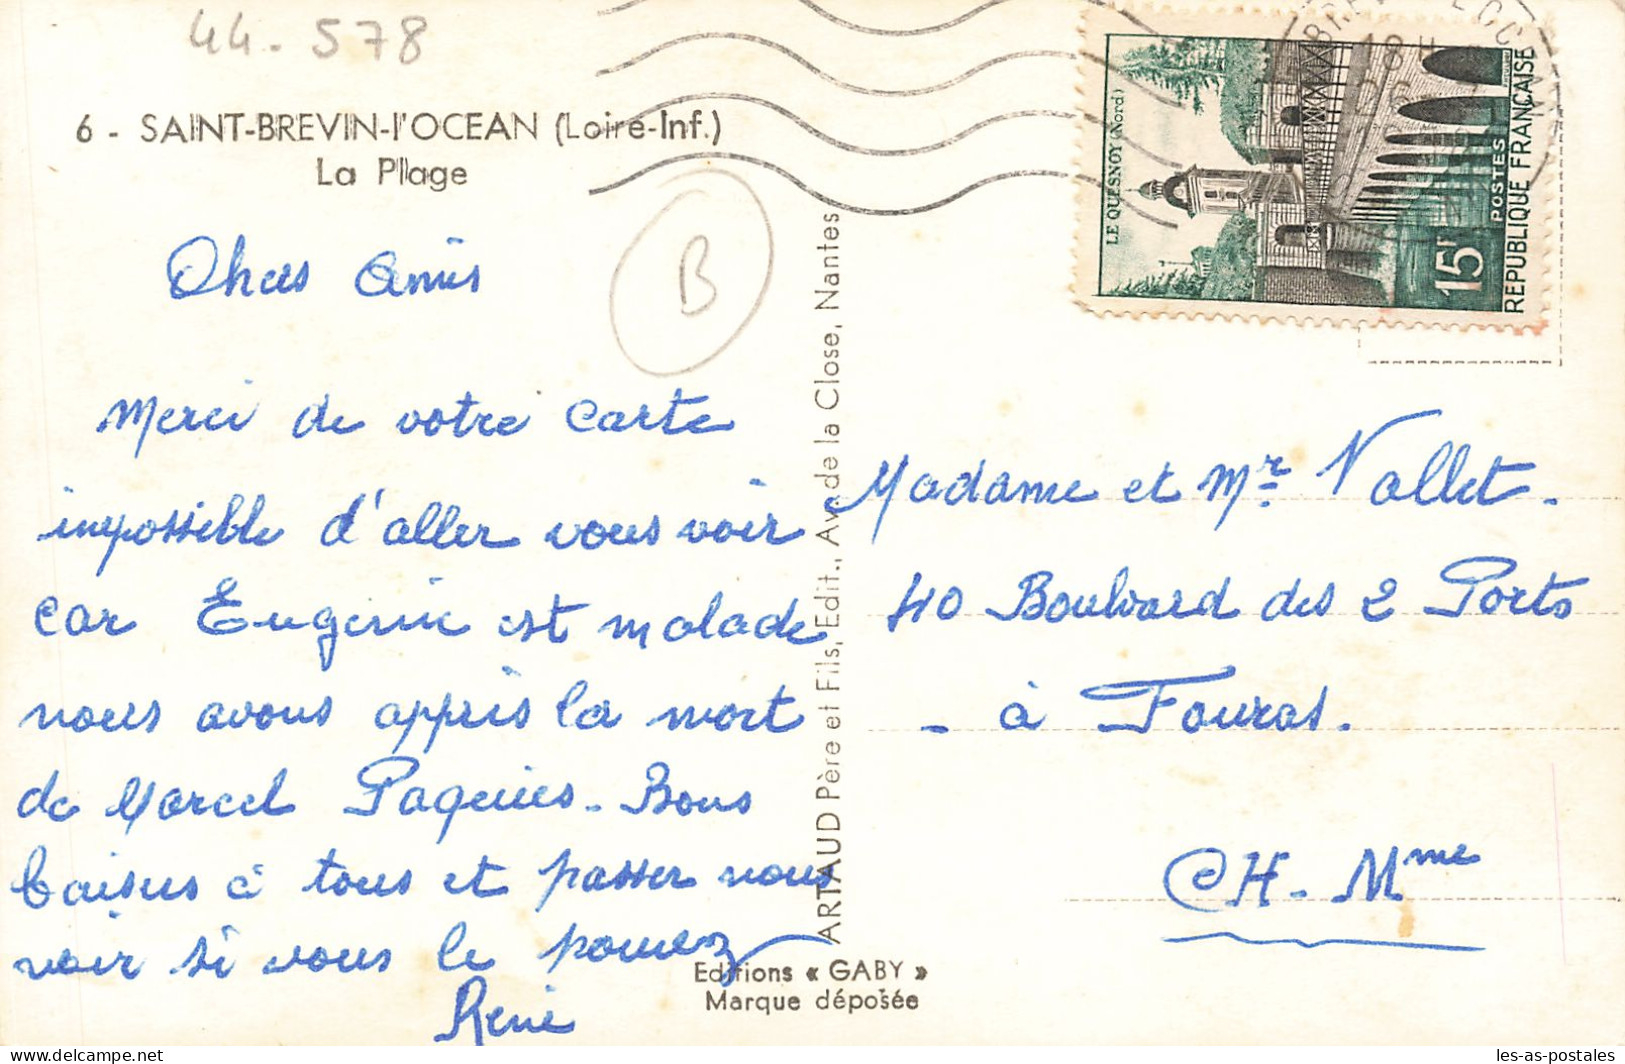 44-578
6 - SAINT-BREVIN-l'OCEAN (Loire-Inf.)
La Plage
B
Chers Amis
Merci de votre carte
impossible d'aller vous voir
car Eugenie est malade
nous avons appris la mort
de Marcel Paques. Bons
baisers à tous et passer nous
voir si vous le pouvez
René
ARTAUD Père et Fils, Edit., Av. de la Close, Nantes
Editions « GABY »
Marque déposée
LE QUESNOY (Nord)
15F
POSTES
REPUBLIQUE FRANÇAISE
Madame et Mr Vallet.
40 Boulvard des 2 Ports
- à Fouras.
CH-Mme
les-as-postales
delcampe.net